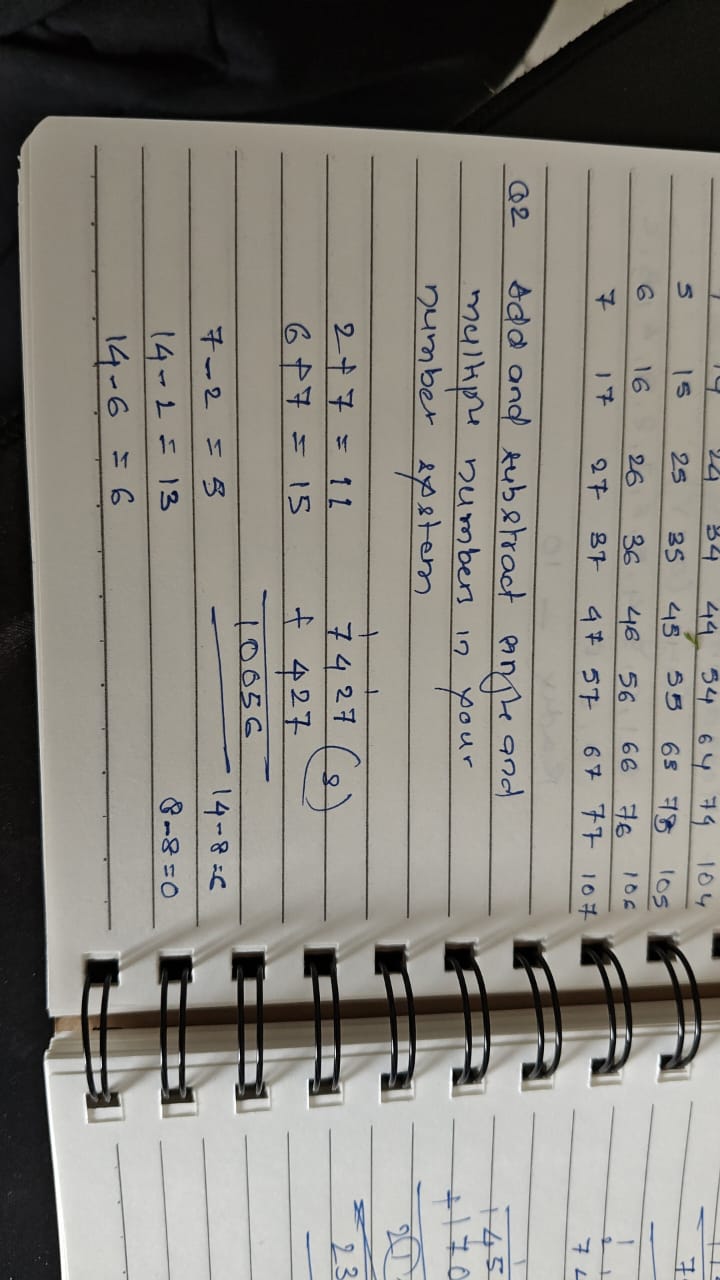 14 24 34 44 54 64 74 104
5 15 25 35 45 55 65 75 105
6 16 26 36 46 56 66 76 106
7 17 27 37 47 57 67 77 107
Q2 Add and substract single and
multiple numbers in your
number system
2+7 = 11
6+7 = 15
7427 (8)
+ 427
10056
14-8=6
8-8=0
7-2 = 5
14-1 = 13
14-6 = 6
145
+170
23